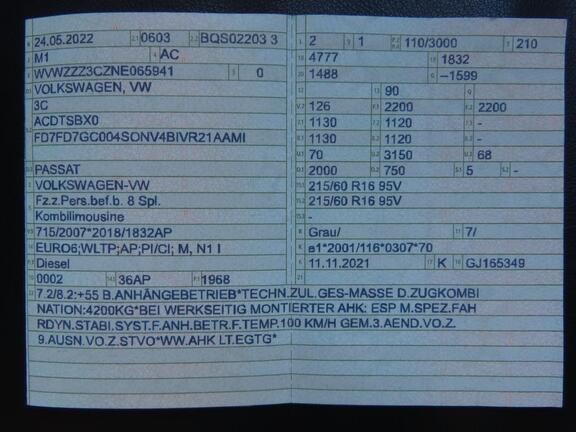 24.05.2022 2.1 0603 2.2 BQS02203 3
J M1 4 AC
E WVWZZZ3CZNE065941 3 0
D.1 VOLKSWAGEN, VW
3C
ACDTSBX0
D.2 FD7FD7GC004SONV4BIVR21AAMI
D.3 PASSAT
2 VOLKSWAGEN-VW
5 Fz.z.Pers.bef.b. 8 Spl.
Kombilimousine
V.9 715/2007*2018/1832AP
14 EURO6;WLTP;AP;PI/CI; M, N1 I
P.3 Diesel
10 0002 14.1 36AP P.1 1968
L 2 9 1 P.2 P.4 110/3000 T 210
18 4777 19 1832
20 1488 G -1599
12 13 90 Q
V.7 126 F.1 2200 F.2 2200
7.1 1130 7.2 1120 7.3 -
8.1 1130 8.2 1120 8.3 -
U.1 70 U.2 3150 U.3 68
O.1 2000 O.2 750 S.1 5 S.2 -
15.1 215/60 R16 95V
15.2 215/60 R16 95V
15.3 -
R Grau/ 11 7/
K e1*2001/116*0307*70
6 11.11.2021 17 K 16 GJ165349
21
22 7.2/8.2:+55 B.ANHÄNGEBETRIEB*TECHN.ZUL.GES-MASSE D.ZUGKOMBI
NATION:4200KG*BEI WERKSEITIG MONTIERTER AHK: ESP M.SPEZ.FAH
RDYN.STABI.SYST.F.ANH.BETR.F.TEMP.100 KM/H GEM.3.AEND.VO.Z.
9.AUSN.VO.Z.STVO*WW.AHK LT.EGTG*